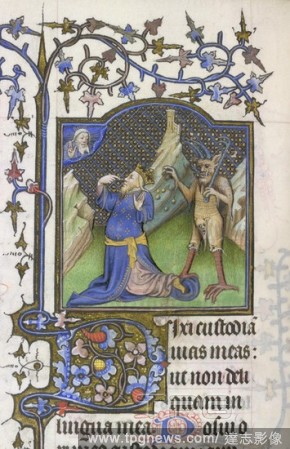 Dixi custodiā
uias meas:
ut non deli
quam in
lingua mea Posui o
www.tpgnews.com | 達志影像